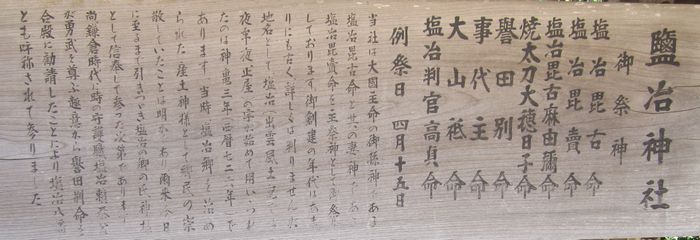 鹽冶神社
御祭神
塩冶毘古命
塩冶毘賣命
塩冶毘古麻由彌命
焼太刀大穂日子命
譽田別命
事代主命
大山祇命
塩冶判官高貞命
例祭日 四月十五日
当社は大國主命の御孫神である
塩冶毘古命とその妻神である
塩冶毘賣命を主祭神としてお祭り
しております御創建の年代はあま
りにも古く詳しくは判りませんが
地名として塩冶が出雲風土記に
夜牟夜、止屋の字が始めて用いられ
たのは神亀三年(西暦七二六年)で
あります 当時、塩冶郷を治め
られた産土神様として郷民の崇
敬していたことは明かであり爾来今日
に至るまで引きつづき塩冶の郷の氏神様
として信奉して参った次第であります
尚鎌倉時代に時の守護職塩冶頼泰
が勇武を尊ぶ趣意から譽田別命を
合殿に勧請したことにより塩冶八幡
とも呼称されて参りました